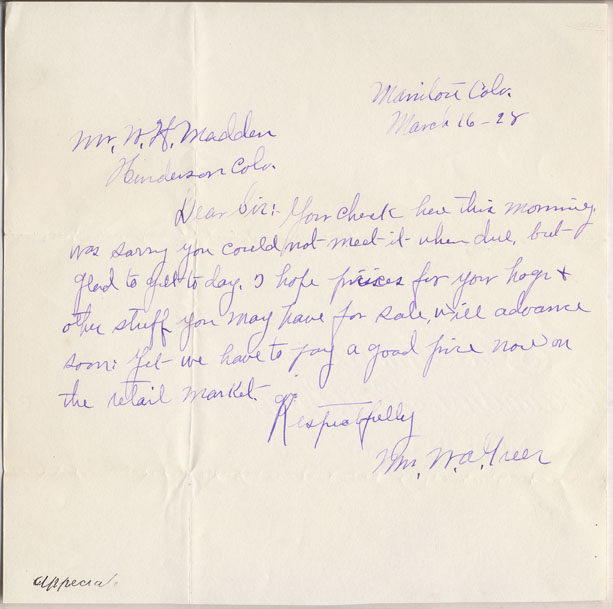 Manitou Colo.
March 16-28
Mr. W. H. Madden
Henderson Colo.
Dear Sir:- Your check here this morning,
was sorry you could not meet it when due, but
glad to get it to day. I hope prices for your hogs +
other stuff you may have for sale, will advance
soon: Yet we have to pay a good price now on
the retail market.
Respectfully
W. A. Greer